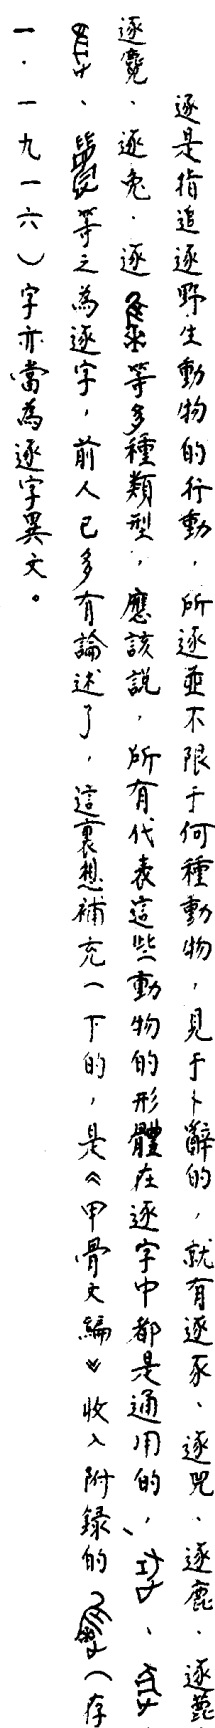 逐是指追逐野生動物的行動，所逐並不限于何種動物，見于卜辭的，就有逐豕、逐兕、逐鹿、逐
逐麑、逐兔、逐等多種類型，應該說，所有代表這些動物的形體在逐字中都是通用的，、
、等之為逐字，前人已多有論述了，這裏想補充一下的，是《甲骨文編》收入附錄的（存
一·一九一六）字亦當為逐字異文。